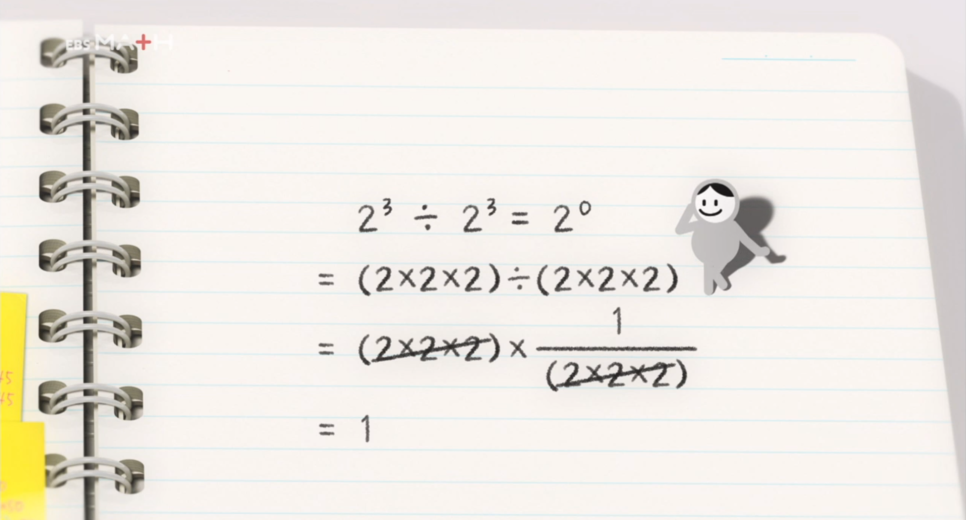 EBS MATH
2³ ÷ 2³ = 2⁰
= (2×2×2)÷(2×2×2)
= (2×2×2)× 1/(2×2×2)
= 1
45
45